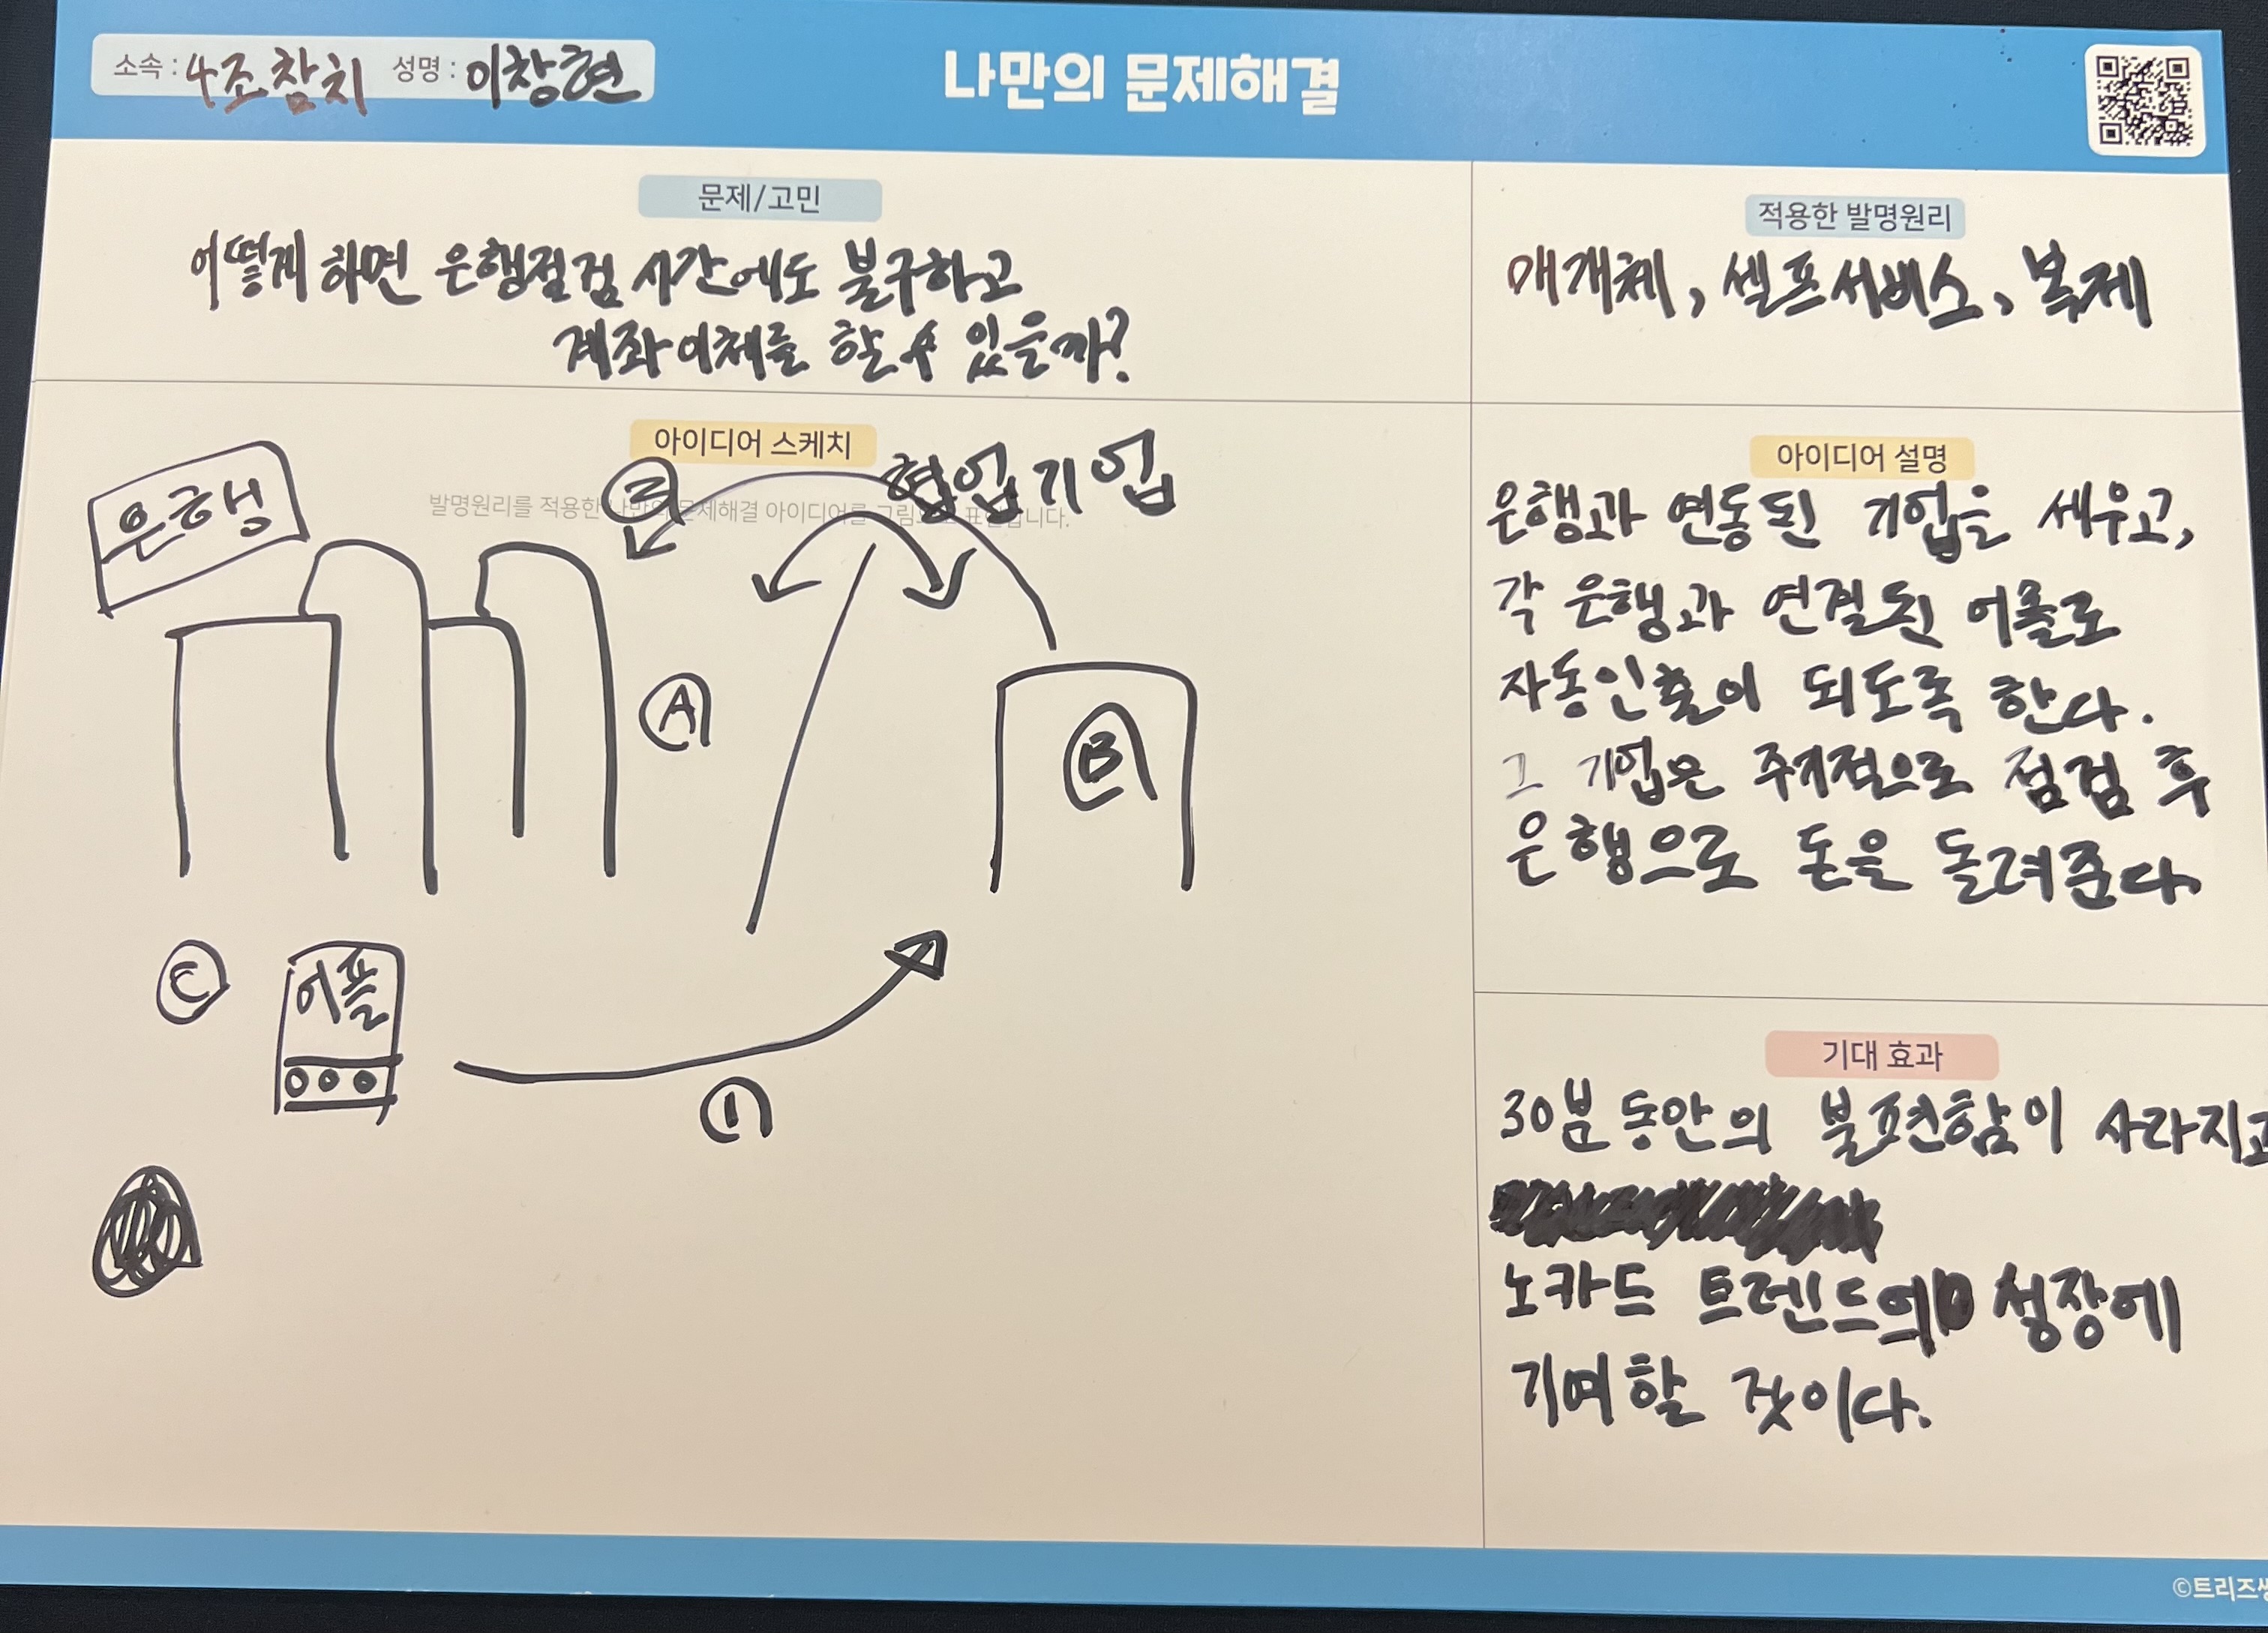 소속 : 4조참치 성명 : 이창현
나만의 문제해결
문제/고민
어떻게 하면 은행점검 시간에도 불구하고
계좌이체를 할 수 있을까?
적용한 발명원리
매개체, 셀프서비스, 복제
아이디어 스케치
발명원리를 적용한 나만의 문제해결 아이디어를
은행
협업기업
A
B
C
어플
1
아이디어 설명
은행과 연동된 기업을 세우고,
각 은행과 연결된 어플로
자동인출이 되도록 한다.
그 기업은 주기적으로 점검 후
은행으로 돈을 돌려준다.
기대 효과
30분 동안의 불편함이 사라지고
노카드 트렌드의 성장에
기여할 것이다.
©트리즈